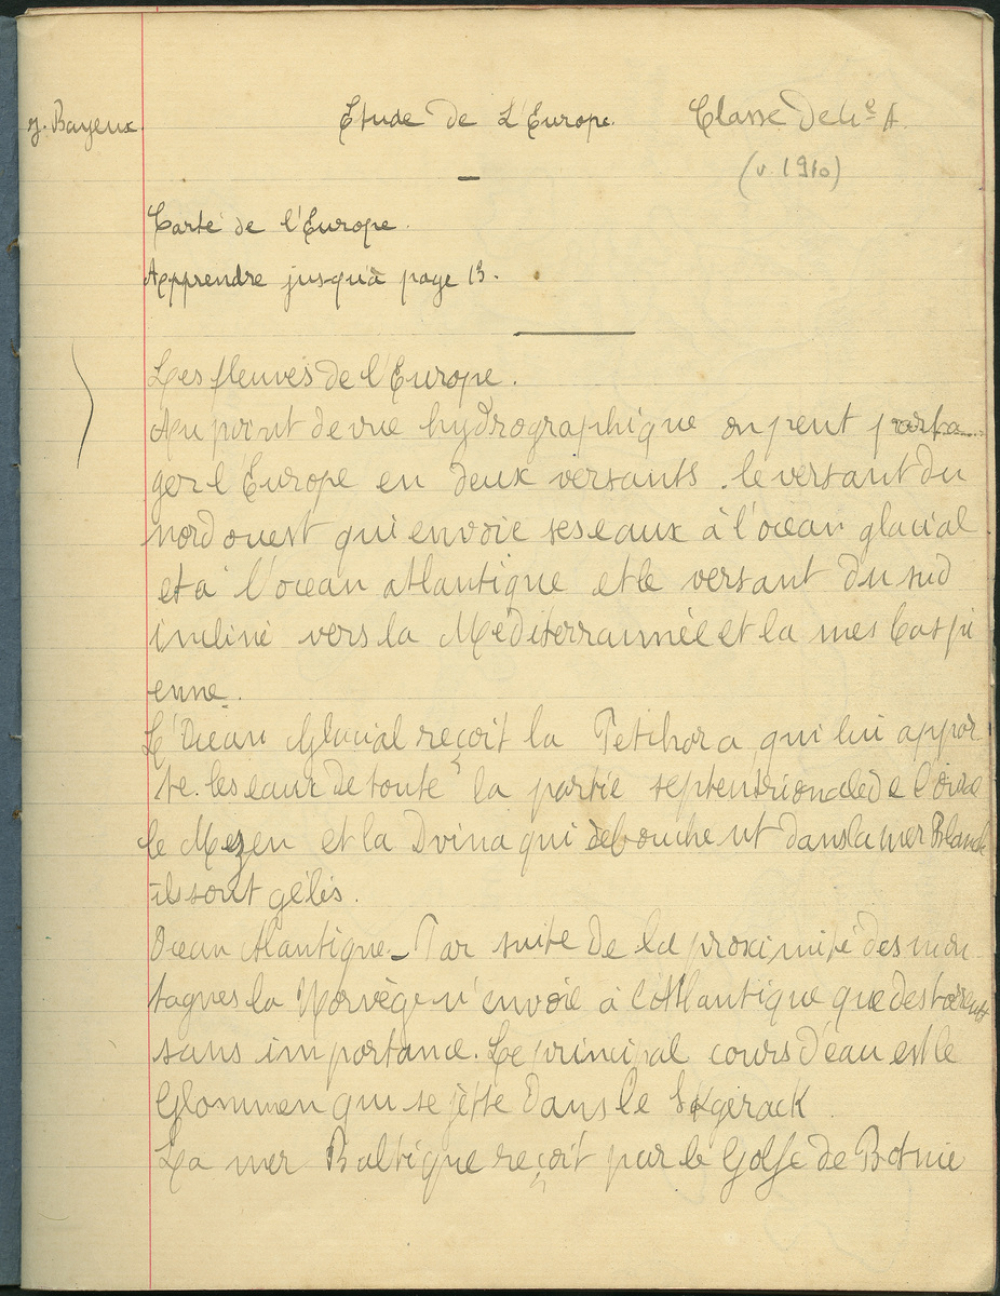 J. Bayeux. Etude de L'Europe. Classe de 4e A.
(v. 1910)
Carte de l'Europe.
Apprendre jusqu'à page 13.
Les fleuves de l'Europe.
Au point de vue hydrographique on peut parta-
ger l'Europe en deux versants. le versant du
nord ouest qui envoie ses eaux à l'océan glacial
et à l'océan atlantique et le versant du sud
incliné vers la Méditerrannée et la mer Caspi
enne.
L'Océan Glacial reçoit la Petchora qui lui appor
te. les eaux de toute la partie septentrionale de l'Oural
le Mezen et la Dvina qui débouchent dans la mer Blanche
ils sont gélés.
Océan Atlantique_ Par suite de la proximité des mon
tagnes la Norvège n'envoie à l'Atlantique que des torrents
sans importance. Le principal cours d'eau est le
Glommen qui se jette dans le Skgerack
La mer Baltique reçoit par le Golfe de Botnie